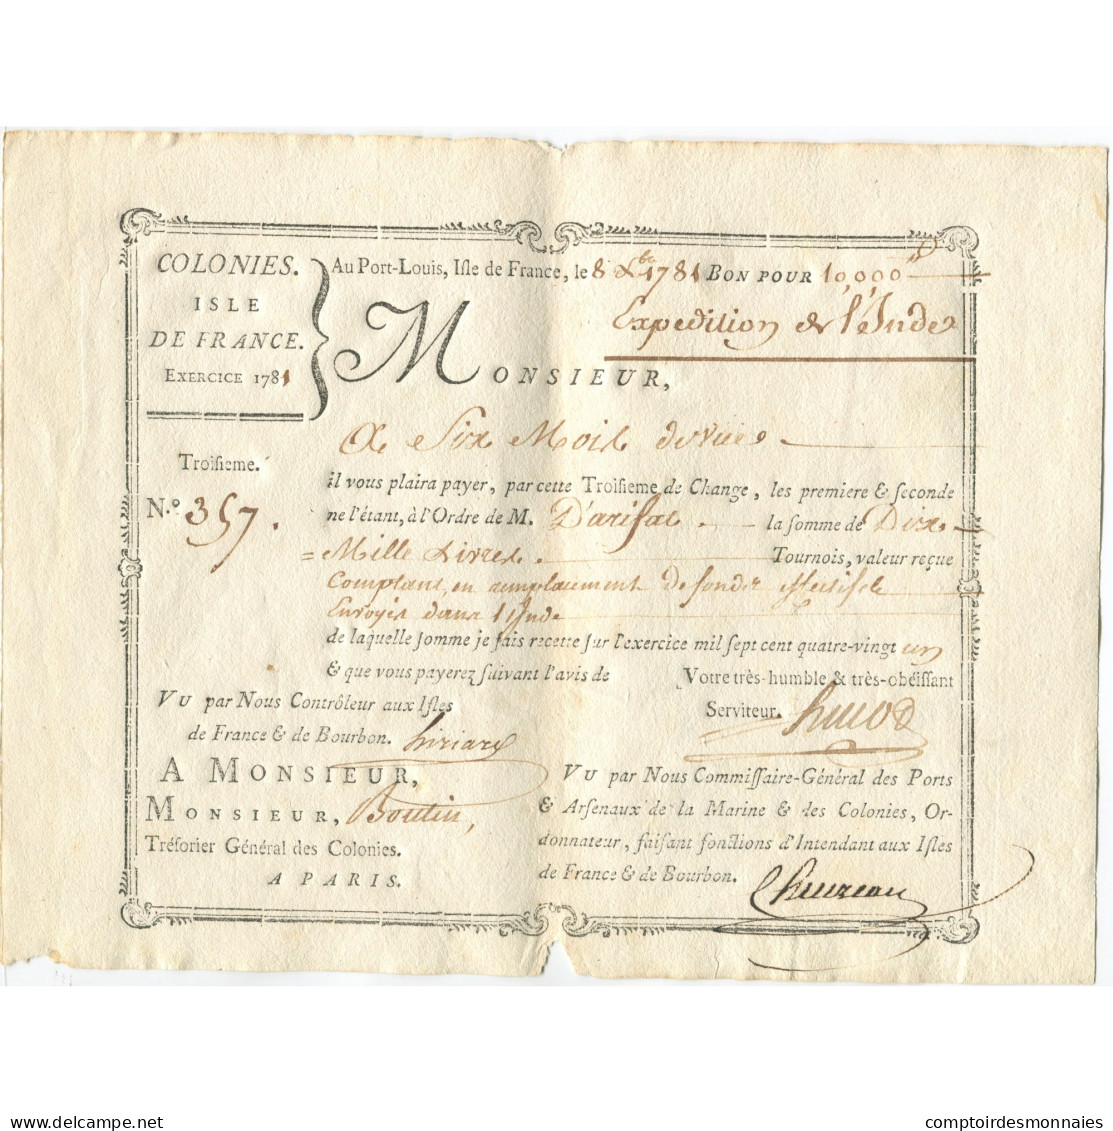 COLONIES.
ISLE
DE FRANCE.
EXERCICE 1781
Au Port-Louis, Isle de France, le 8 Xbre 1781 BON POUR 10,000 ₶
Expedition de l'Inde
MONSIEUR,
A Six Mois de vue
Troisieme.
N.º 357.
il vous plaira payer, par cette Troisieme de Change, les premiere & seconde
ne l'étant, à l'Ordre de M. D'arifat la somme de Dix
= Mille Livres Tournois, valeur reçue
Comptant, en remplacement de fonds effectifs
Envoyés dans l'Inde
de laquelle somme je fais recette sur l'exercice mil sept cent quatre-vingt un
& que vous payerez suivant l'avis de Votre très-humble & très-obéissant
Serviteur.
VU par Nous Contrôleur aux Isles
de France & de Bourbon.
A MONSIEUR,
MONSIEUR, Boutin,
Trésorier Général des Colonies.
A PARIS.
VU par Nous Commissaire-Général des Ports
& Arsenaux de la Marine & des Colonies, Or-
donnateur, faisant fonctions d'Intendant aux Isles
de France & de Bourbon.
comptoirdesmonnaies